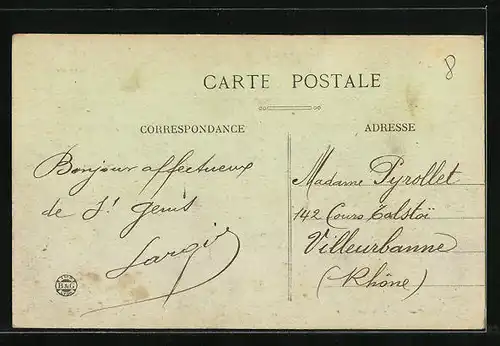 8
CARTE POSTALE
CORRESPONDANCE
ADRESSE
Bonjour affectueux
de St Genis
Madame Pyrollet
142 Cours Tolstoï
Villeurbanne
(Rhône)
B&G